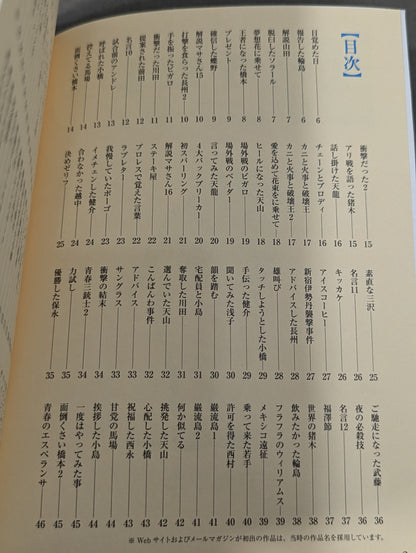 【目次】
目覚めた日 6
報告した輪島 6
解説山田 7
脱臼したソラール 7
夢想花に乗せて 8
王者になった橋本 8
プレゼント 9
確信した蝶野 9
解説マサさん15 10
打撃を食らった長州2 10
手を振ったビガロ 11
衝撃だった川田 11
提案された前田 12
名言10 12
試合前のアンドレ 13
呼ばれた小橋 13
消えてる馬場 14
面倒くさい橋本 14
衝撃だった2 15
アリ戦を語った猪木 15
話し掛けた天龍 16
チェーンとブロディ 16
カニと火事と破壊王 17
カニと火事と破壊王2 17
愛を込めて花束をに乗せて 18
ヒールになった天山 18
場外戦のベイダー 19
場外戦のビガロ 19
言ってみた天龍 20
4大バックブリーカー 20
初スパーリング 21
解説マサさん16 21
ステーキ屋 22
プロレスで覚えた言葉 22
ラブレター 23
我慢していたボーゴ 23
イメチェンした健介 24
合わなかった越中 24
決めゼリフ 25
素直な三沢 25
名言11 26
キッカケ 26
アイスコーヒー 27
新宿伊勢丹襲撃事件 27
アドバイスした長州 28
雄叫び 28
タッチしようとした小橋 29
手伝った健介 29
聞いてみた浅子 30
韻を踏む 30
宅配員と小島 31
奪取した川田 31
選んでいた天山 32
こんばんわ事件 32
アドバイス 33
サングラス 33
衝撃の結末 34
青春三銃士2 34
力試し 35
優勝した保永 35
ご馳走になった武藤 36
夜の必殺技 36
名言12 37
福澤節 37
世界の猪木 38
飲みたかった輪島 38
フラフラのウィリアムス 39
メキシコ遠征 39
乗って来た若手 40
許可を得た西村 40
巌流島1 41
巌流島2 41
何か似てる 42
挑発した天山 42
心配した小橋 43
祝福した西永 43
甘党の馬場 44
挨拶した小島 44
一度はやってみた事 45
面倒くさい橋本2 45
青春のエスペランサ 46
※ Web サイトおよびメールマガジンが初出の作品は、当時の作品名を採用しています。